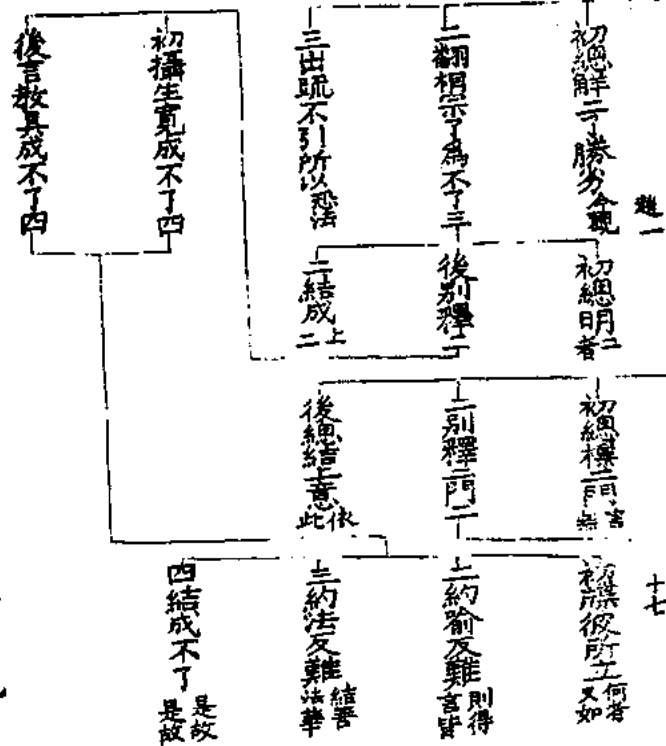 趙一
初總解二了勝劣今觀
二翻相宗了為不了三
三出疏不引所以恐法
初攝生寬成不了四
後言教具成不了四
初總明二者
後別釋二
二結成上二
初總標二門言
二別釋二門二
後總結上意依此
十七
初牒彼所立何者又如
二約喻反難則得言皆
三約法反難結善法華
四結成不了是故是故